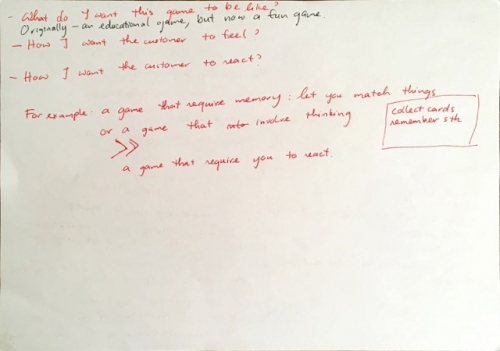 - What do I want this game to be like?
Originally - an educational game, but now a fun game.
- How I want the customer to feel?
- How I want the customer to react?
For example: a game that require memory: let you match things
or a game that involve thinking
>>
a game that require you to react.
collect cards
remember sth